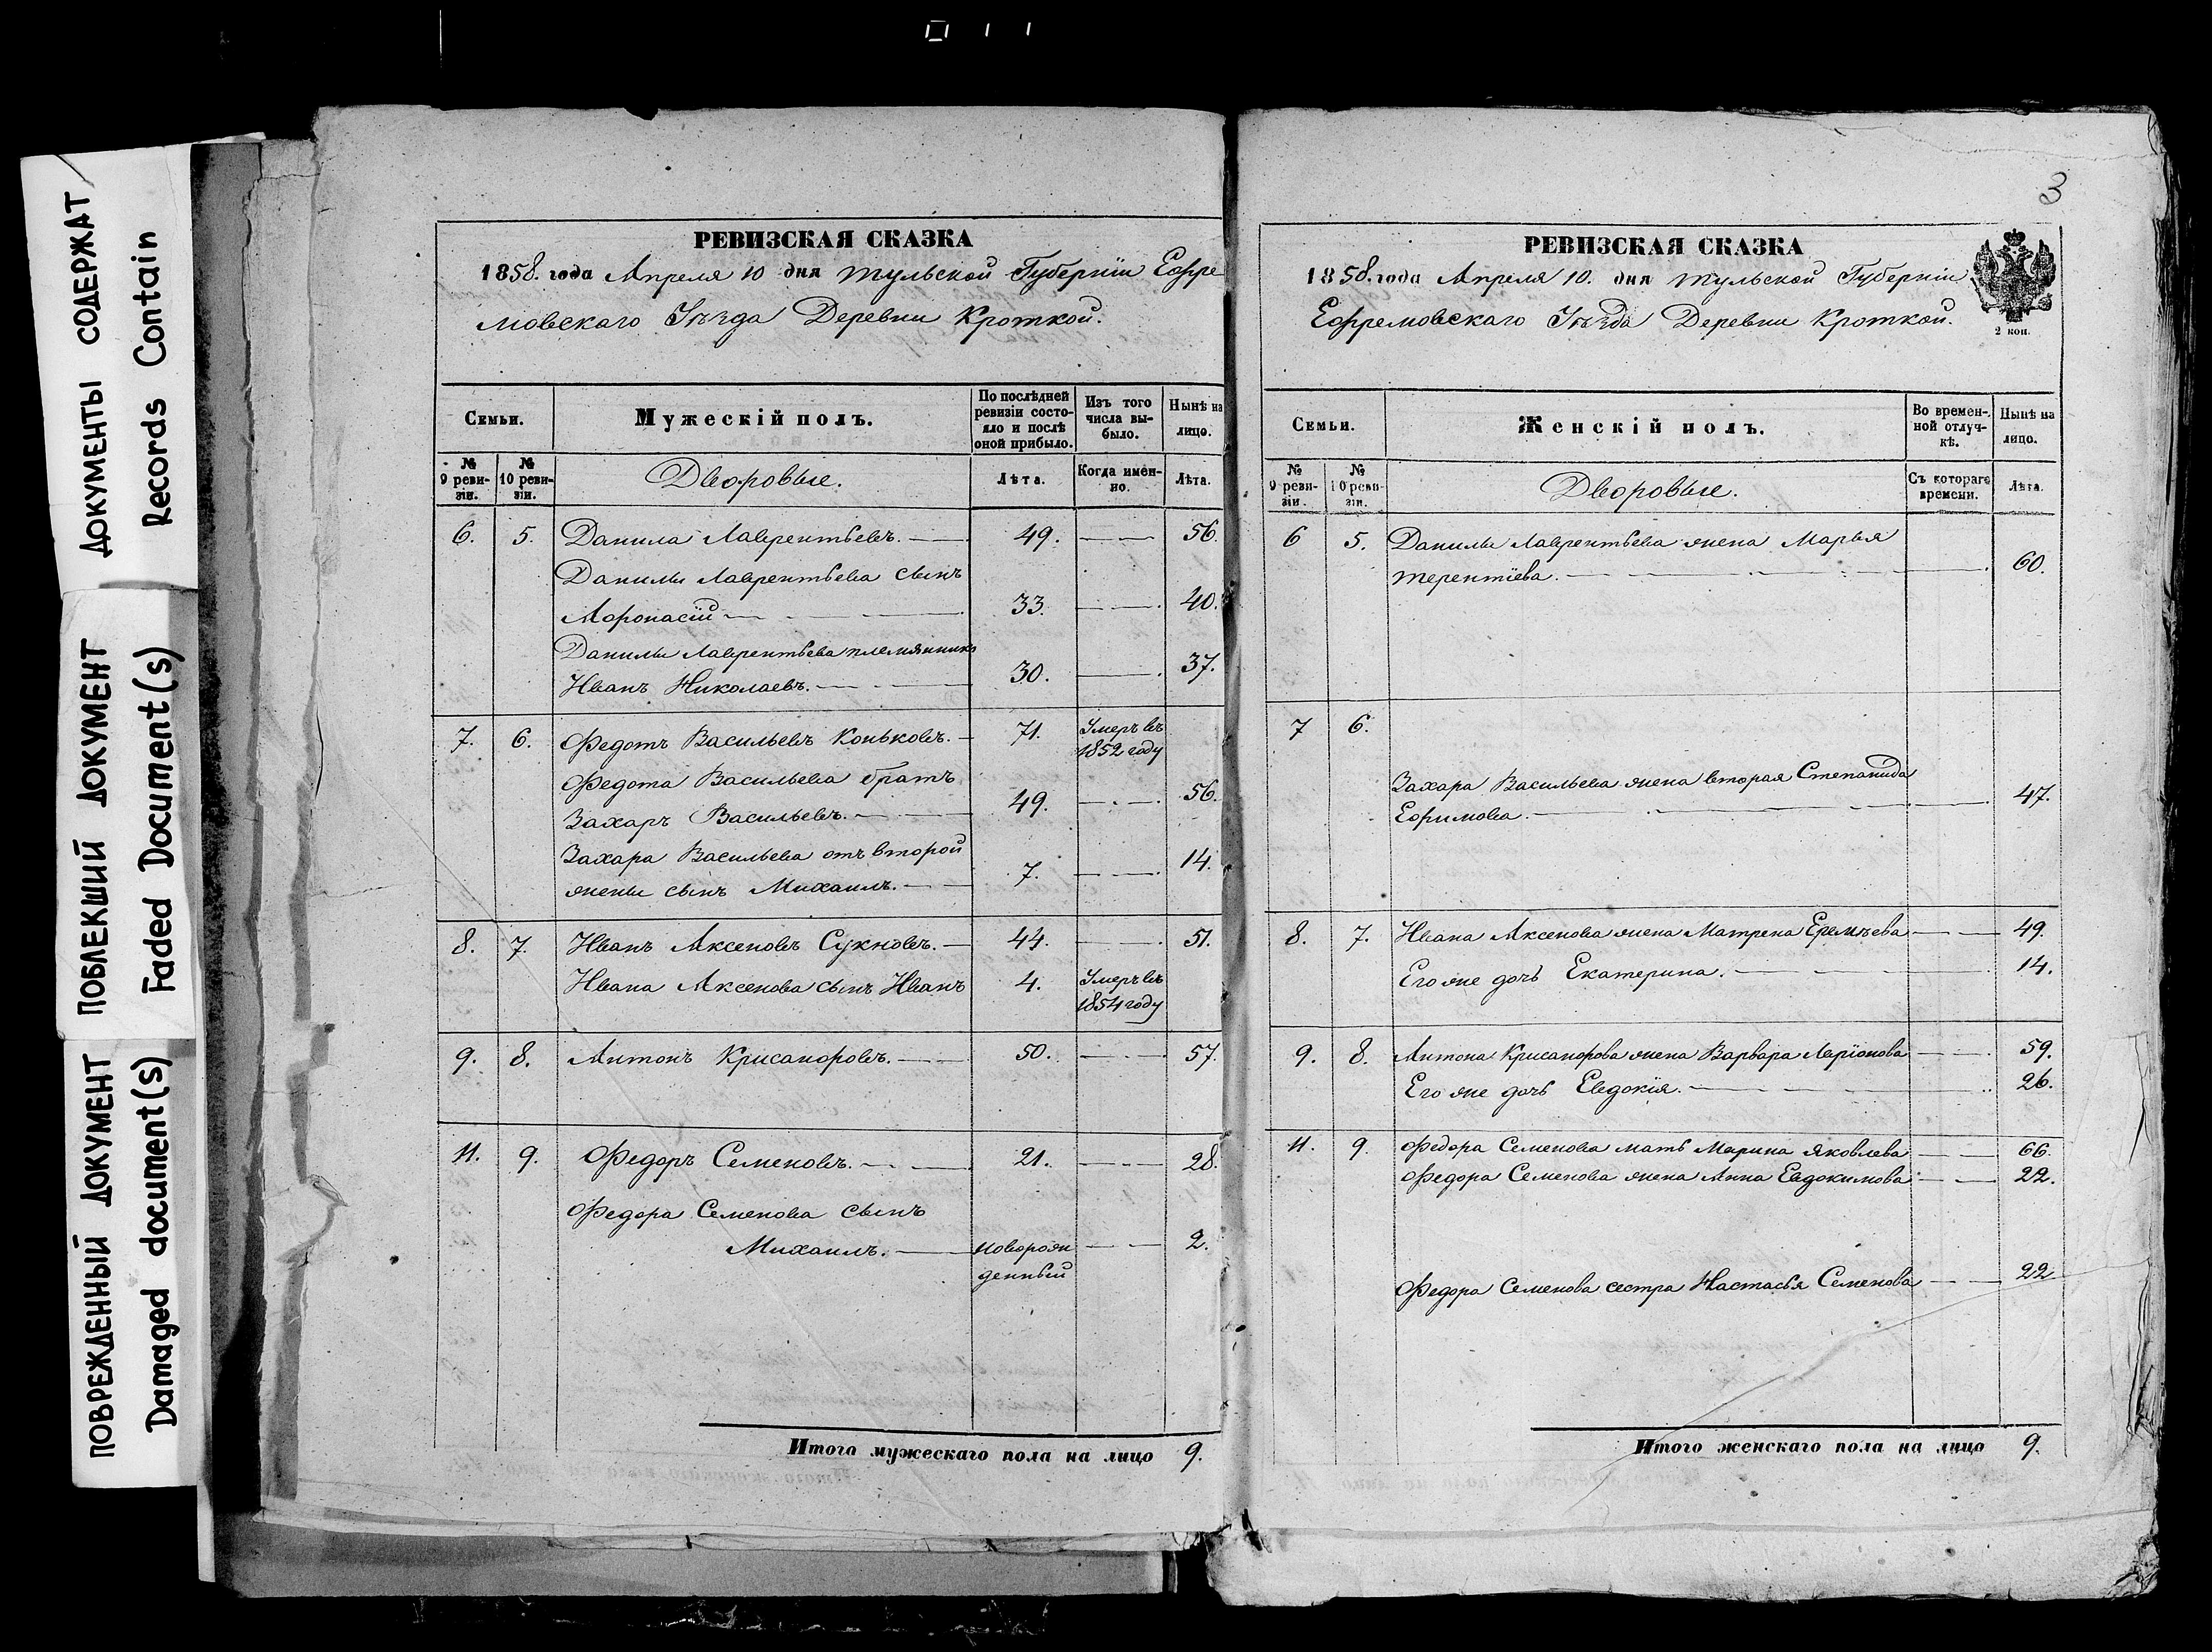 ДОКУМЕНТЫ СОДЕРЖАТ
Records Contain
ПОБЛЕКШИЙ ДОКУМЕНТ
Faded Document(s)
ПОВРЕЖДЕННЫЙ ДОКУМЕНТ
Damaged document(s)
РЕВИЗСКАЯ СКАЗКА
1858. года Апреля 10 дня Тульской Губерніи Ефре
мовскаго Уѣзда Деревни Кроткой.
Семьи. Мужескій полъ. По послѣдней ревизіи состояло и послѣ оной прибыло. Изъ того числа выбыло. Нынѣ на лицо.
№ 9 ревизіи. № 10 ревизіи. Дворовые. Лѣта. Когда именно. Лѣта.
6. 5. Данила Лаврентьевъ. 49. 56.
Данилы Лаврентьева сынъ
Афонасій 33. 40.
Данилы Лаврентьева племянникъ
Иванъ Николаевъ. 30. 37.
7. 6. Федотъ Васильевъ Коньковъ. 71. Умеръ въ
1852 году
Федота Васильева братъ
Захаръ Васильевъ. 49. 56.
Захара Васильева отъ второй
жены сынъ Михаилъ. 7. 14.
8. 7. Иванъ Аксеновъ Сукновъ. 44. 51.
Ивана Аксенова сынъ Иванъ 4. Умеръ въ
1854 году
9. 8. Антонъ Крисанфовъ. 50. 57.
11. 9. Федоръ Семеновъ. 21. 28.
Федора Семенова сынъ
Михаилъ. новорож 2.
денный
Итого мужескаго пола на лицо 9.
3
РЕВИЗСКАЯ СКАЗКА
1858. года Апреля 10. дня Тульской Губерніи
Ефремовскаго Уѣзда Деревни Кроткой.
2 коп.
Семьи. Женскій полъ. Во временной отлучкѣ. Нынѣ на лицо.
№ 9 ревизіи. № 10 ревизіи. Дворовые. Съ котораго времени. Лѣта.
6 5. Данилы Лаврентьева жена Марья
Терентіева. 60.
7 6.
Захара Васильева жена вторая Степанида
Ефимова. 47.
8. 7. Ивана Аксенова жена Матрена Еремѣева 49.
Его же дочь Екатерина. 14.
9. 8. Антона Крисанфова жена Варвара Ларіонова 59.
Его же дочь Евдокія. 26.
11. 9. Федора Семенова мать Марина Яковлева 66.
Федора Семенова жена Анна Евдокимова 22.
Федора Семенова сестра Настасья Семенова 22
Итого женскаго пола на лицо 9.